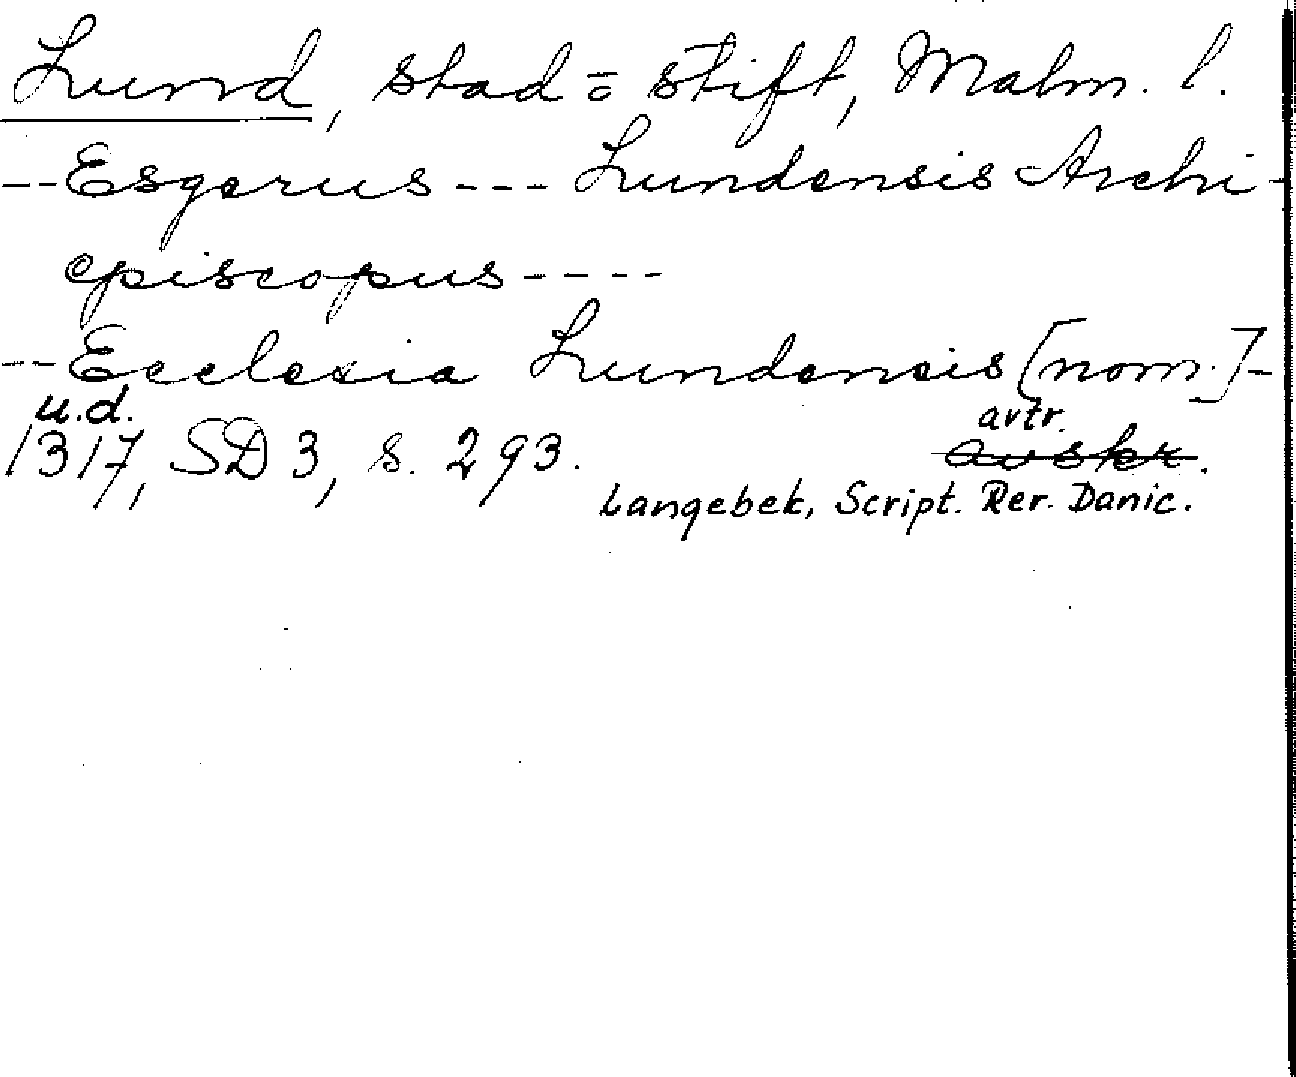 Lund, stad = stift, Malm. l.
-- Esgerus --- Lundensis Archi-
episcopus ----
-- Ecclesia Lundensis [nom.] -
u.d.
1317, SD 3, s. 293. avtr.
avskr.
Langebek, Script. Rer. Danic.